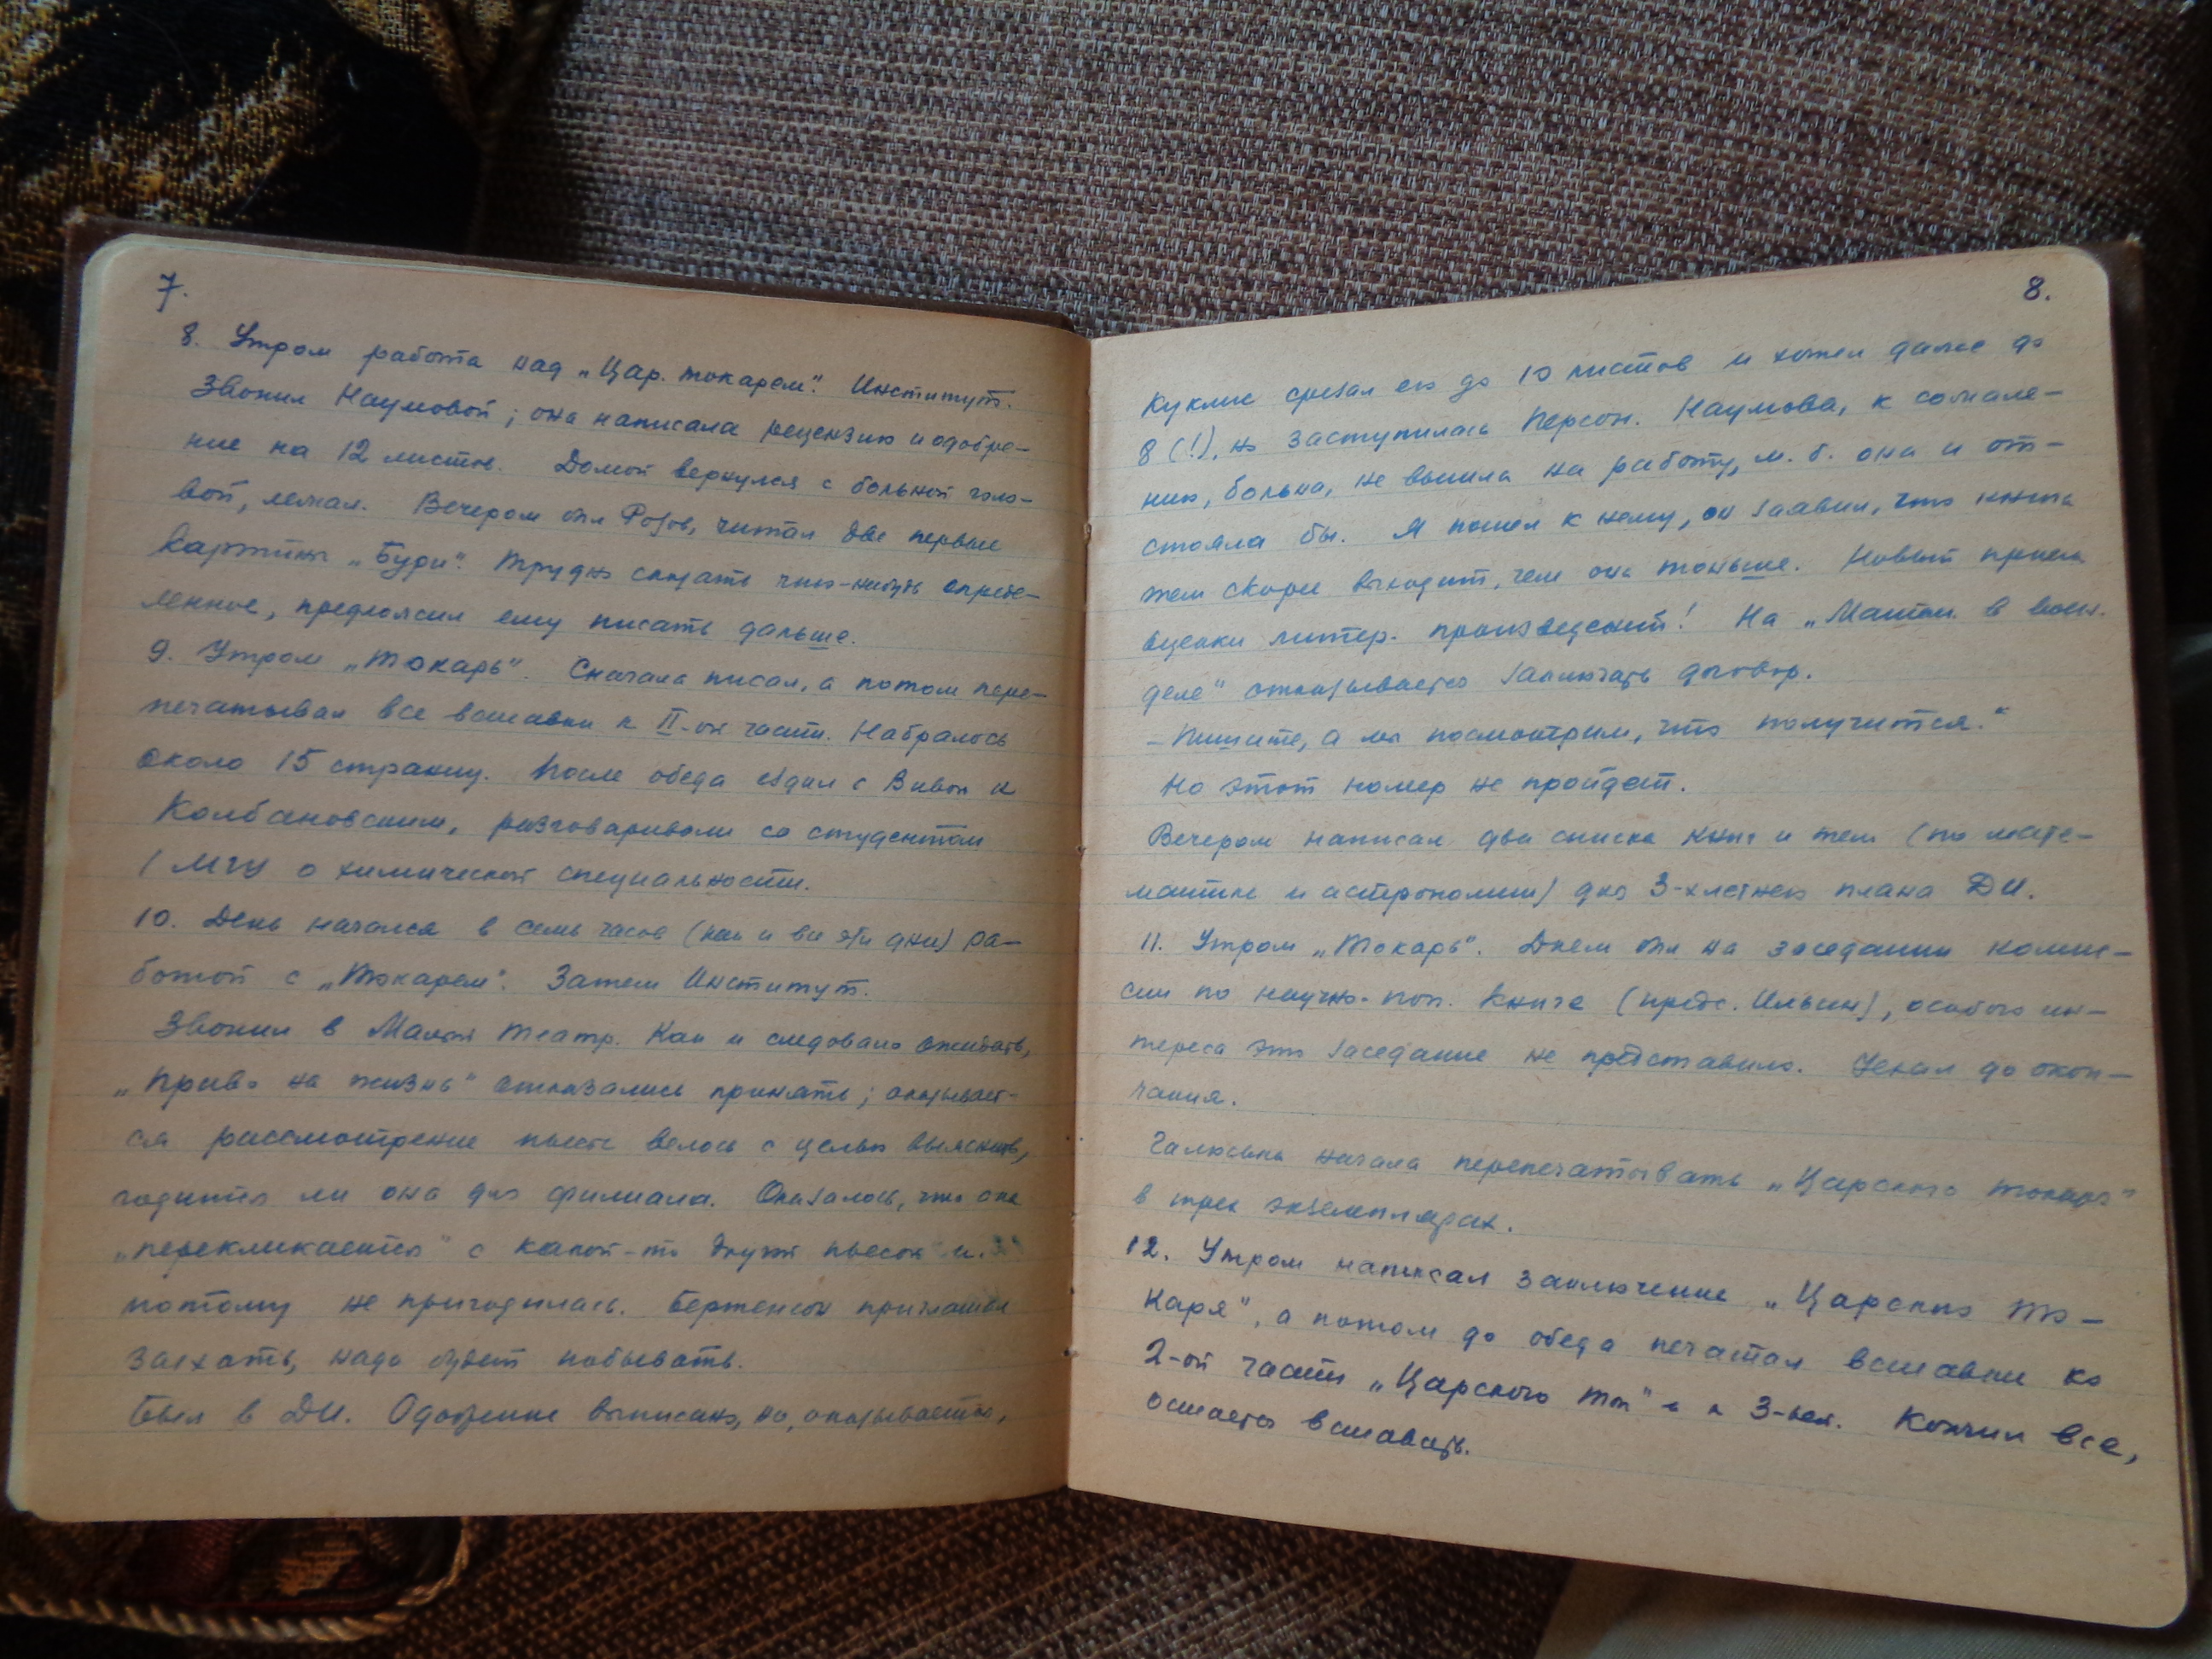 7.
8. Утром работа над „Цар. токарем". Институт.
Звонил Наумовой; она написала рецензию и одобре-
ние на 12 листов. Домой вернулся с больной голо-
вой, лежал. Вечером был Розов, читал две первые
картины „Бури". Трудно сказать что-нибудь опреде-
ленное, предложил ему писать дальше.
9. Утром „Токарь". Сначала писал, а потом пере-
печатывал все вставки к II-ой части. Набралось
около 15 страниц. После обеда ездил с Вивой к
Колбановским, разговаривали со студентом
I МГУ о химической специальности.
10. День начался в семь часов (как и все эти дни) ра-
ботой с „Токарем". Затем Институт.
Звонил в Малый театр. Как и следовало ожидать,
„Право на жизнь" отказались принять; оказывает-
ся рассмотрение пьесы велось с целью выяснить,
годится ли она для филиала. Оказалось, что она
„перекликается" с какой-то другой пьесой и
потому не пригодилась. Бертенсон приглашал
заехать, надо будет побывать.
Был в ДИ. Одобрение выписано, но, оказывается,
8.
Куклис срезал его до 10 листов и хотел даже до
8 (!), но заступилась Персон. Наумова, к сожале-
нию, больна, не вышла на работу, м. б. она и от-
стояла бы. Я пошел к нему, он заявил, что книга
тем скорее выходит, чем она тоньше. Новый прием
оценки литер. произведений! На „Матем. в воен.
деле" отказывается заключать договор.
– Пишите, а мы посмотрим, что получится."
Но этот номер не пройдет.
Вечером написал два списка книг и тем (по мате-
матике и астрономии) для 3-хлетнего плана ДИ.
11. Утром „Токарь". Днем был на заседании комис-
сии по научно-поп. книге (предс. Ильин), особого ин-
тереса это заседание не представило. Уехал до окон-
чания.
Галюська начала перепечатывать „Царского токаря"
в трех экземплярах.
12. Утром написал заключение „Царского то-
каря", а потом до обеда печатал вставки ко
2-ой части „Царского ток" и к 3-ьей. Кончил все,
остается вставить.